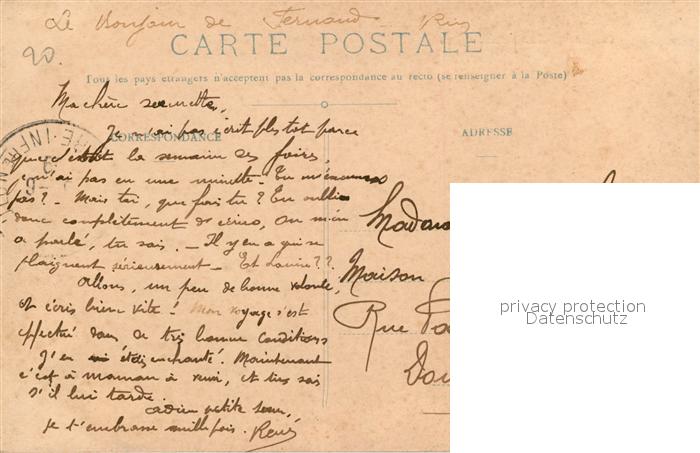 Le Bonjour de Fernand
20.
CARTE POSTALE
Tous les pays étrangers n'acceptent pas la correspondance au recto (se renseigner à la Poste)
Ma chère sœurette,
CORRESPONDANCE
ADRESSE
Je n'ai pas écrit plus tot parce
que c'était la semaine des foires,
j'en ai pas eu une minute - Tu m'excuseras
pas? - Mais toi, que fais tu? Tu oublies
donc complètement de écrire, On m'en
a parlé, tu sais. - Il y en a qui se
plaignent sérieusement - Et Louise??
Allons, un peu de bonne volonté,
et écris bien vite! Mon voyage s'est
effectué dans de très bonne conditions
J'en étais enchanté. Maintenant
c'est à maman à venir, et tu sais
s'il lui tarde.
adieu petite sœur,
je t'embrasse mille fois. René
Maison
Rue
privacy protection
Datenschutz